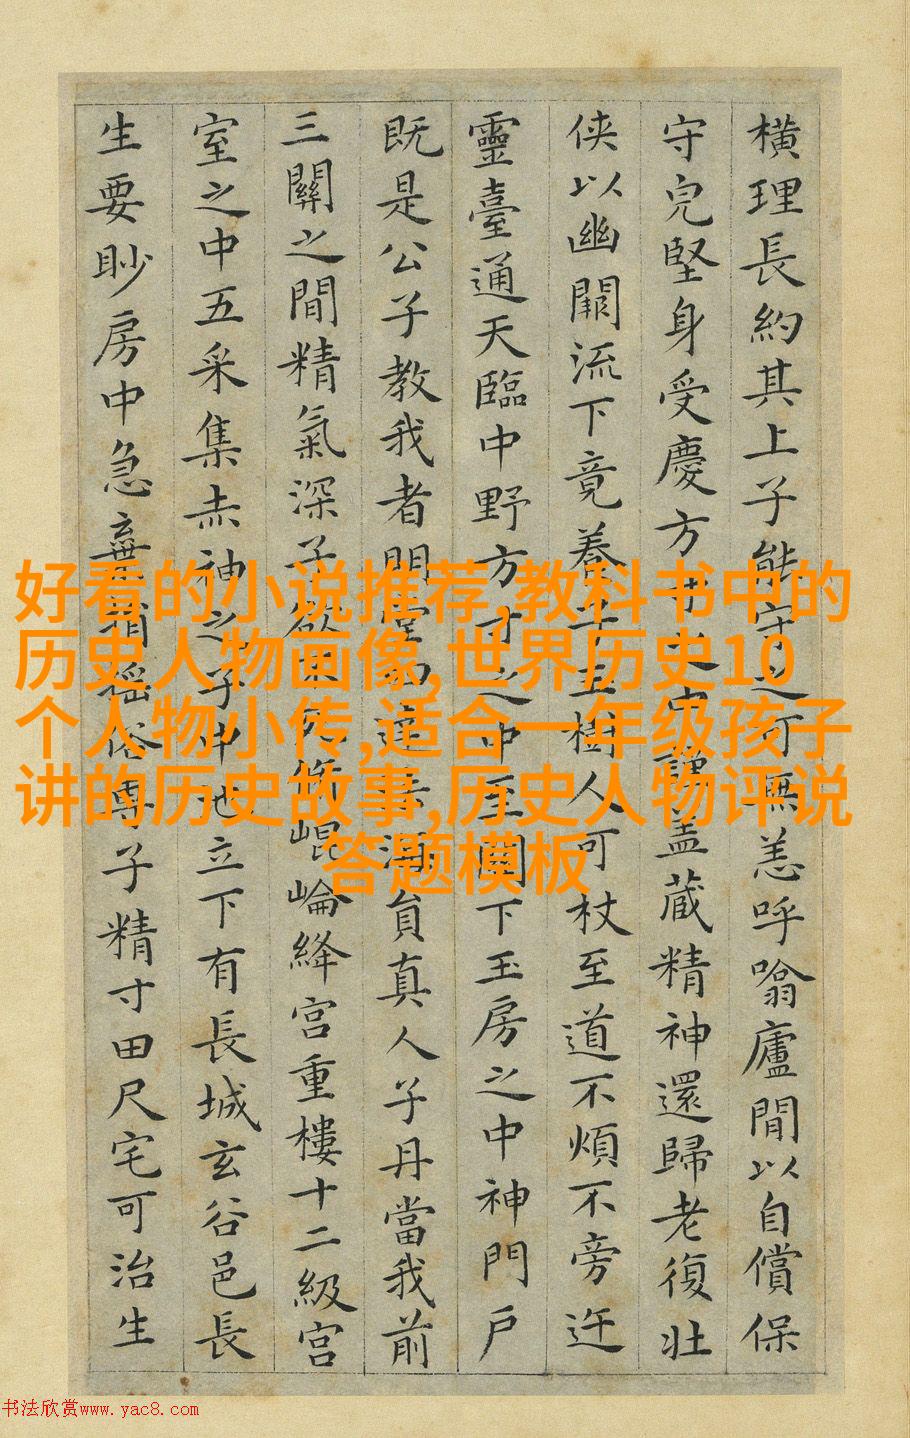 橫理長約其上子能守之可無恙呼噏廬間以自償保
守皃堅身受慶方寸之中謹盖蔵精神還歸老復壯
侠以幽闕流下竟養子玉樹人可杖至道不煩不旁迕
靈臺通天臨中野方寸之中至關下玉房之中神門戶
既是公子教我者明堂四達法海員真人子丹當我前
三關之間精氣深子欲不死脩崐崘絳宮重樓十二級宮
室之中五采集赤神之子中池立下有長城玄谷邑長
生要眇房中急棄捐搖俗專子精寸田尺宅可治生
好看的小说推荐,教科书中的
历史人物画像,世界历史10
个人物小传,适合一年级孩子
讲的历史故事,历史人物评说
答题模板
书法欣赏www.yac8.com